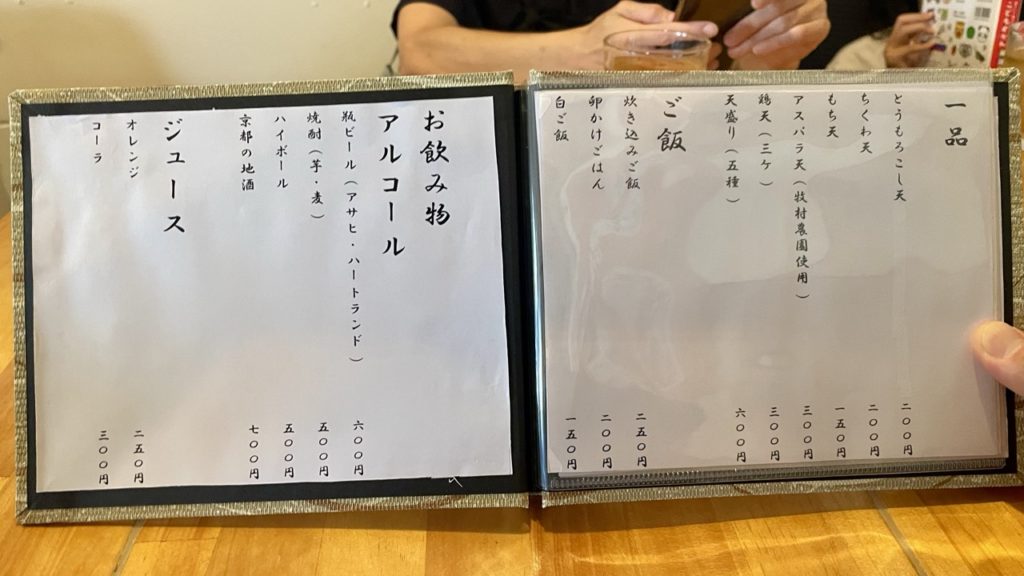 一品
とうもろこし天 二〇〇円
ちくわ天 二〇〇円
もち天 一五〇円
アスパラ天（牧村農園使用） 三〇〇円
鶏天（三ケ） 三〇〇円
天盛り（五種） 六〇〇円
ご飯
炊き込みご飯 二五〇円
卵かけごはん 二〇〇円
白ご飯 一五〇円
お飲み物
アルコール
瓶ビール（アサヒ・ハートランド） 六〇〇円
焼酎（芋・麦） 五〇〇円
ハイボール 五〇〇円
京都の地酒 七〇〇円
ジュース
オレンジ 二五〇円
コーラ 三〇〇円